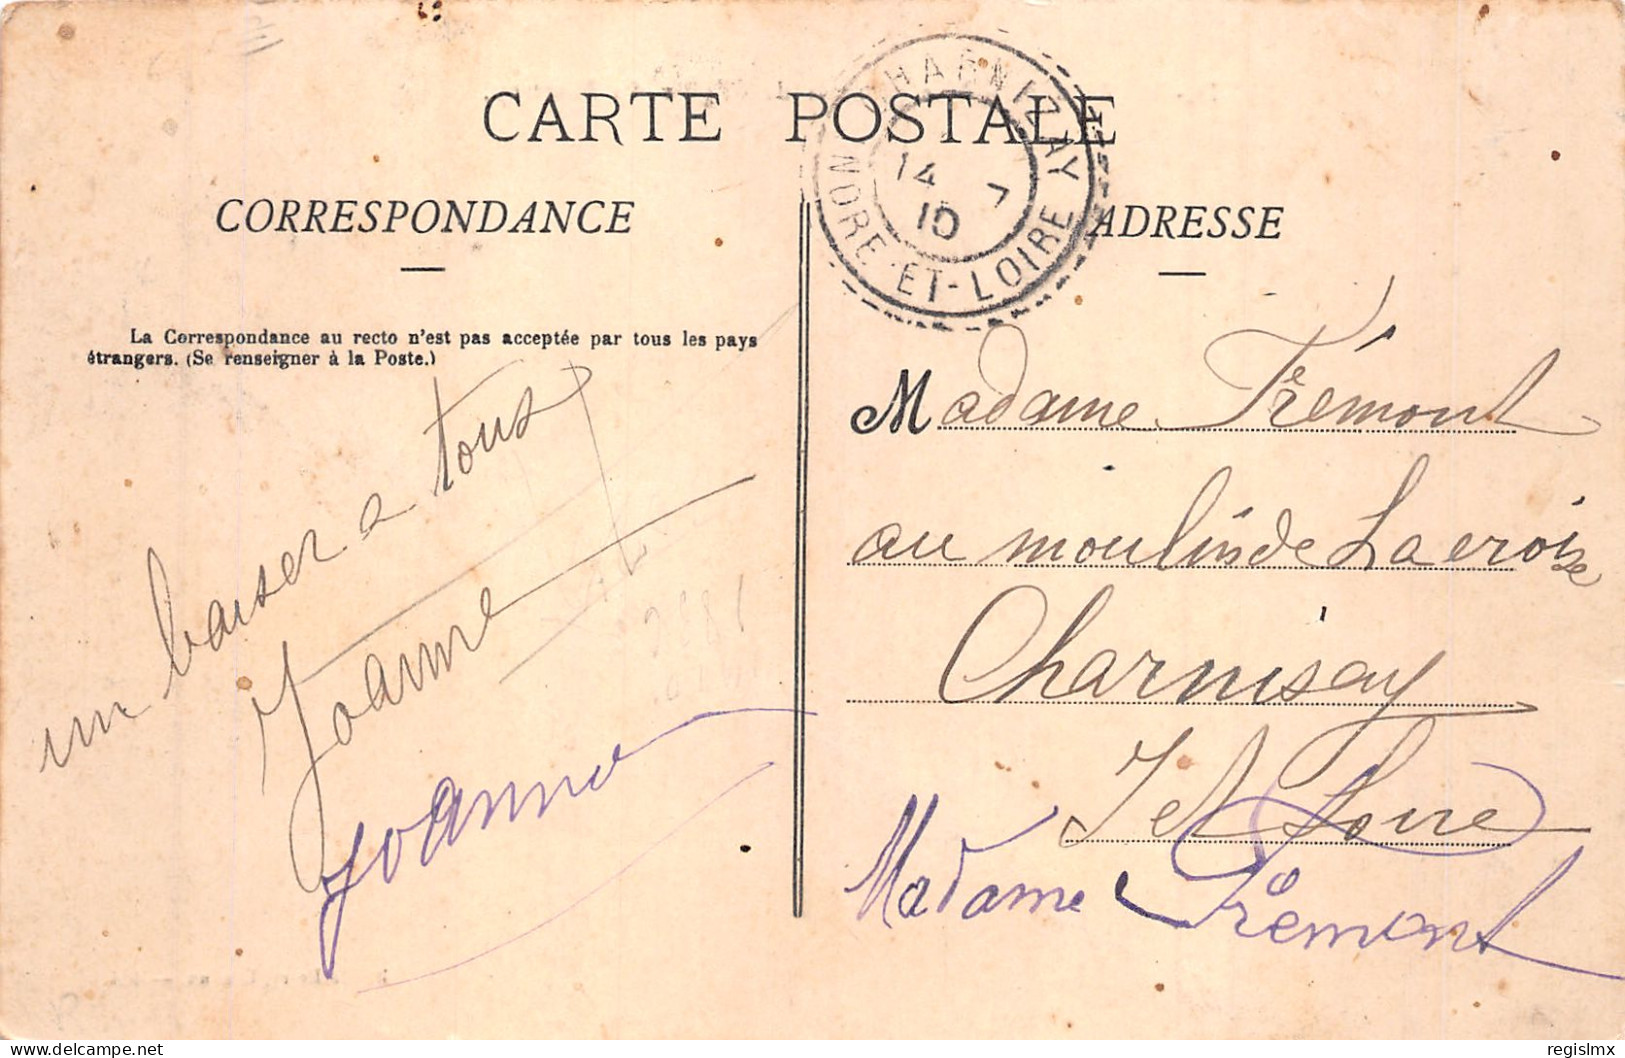 CARTE POSTALE
CHARNIZAY
14 7
10
INDRE-ET-LOIRE
CORRESPONDANCE
La Correspondance au recto n'est pas acceptée par tous les pays
étrangers. (Se renseigner à la Poste.)
un baiser a tous
Joanne
Joanne
ADRESSE
Madame Frémont
au moulin de Lacroix
Charnisay
I et Loire
Madame Frémont
regislmx
delcampe.net